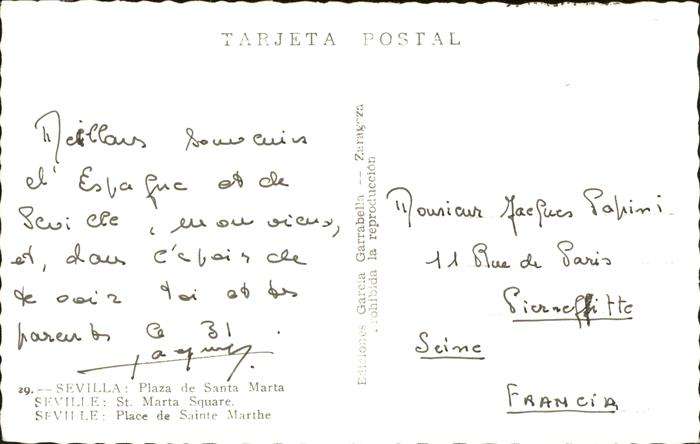 TARJETA POSTAL
Meillars souvenirs
d'Espagne et de
Seville, mon vieux,
et, dans l'espoir de
te voir toi et tes
parents le 31.
Jacques
29. -- SEVILLA: Plaza de Santa Marta
SEVILLE: St. Marta Square.
SEVILLE: Place de Sainte Marthe
Ediciones García Garrabella -- Zaragoza
Prohibida la reproducción
Monsieur Jacques Papini
11 Rue de Paris
Pierreffitte
Seine
FRANCIA